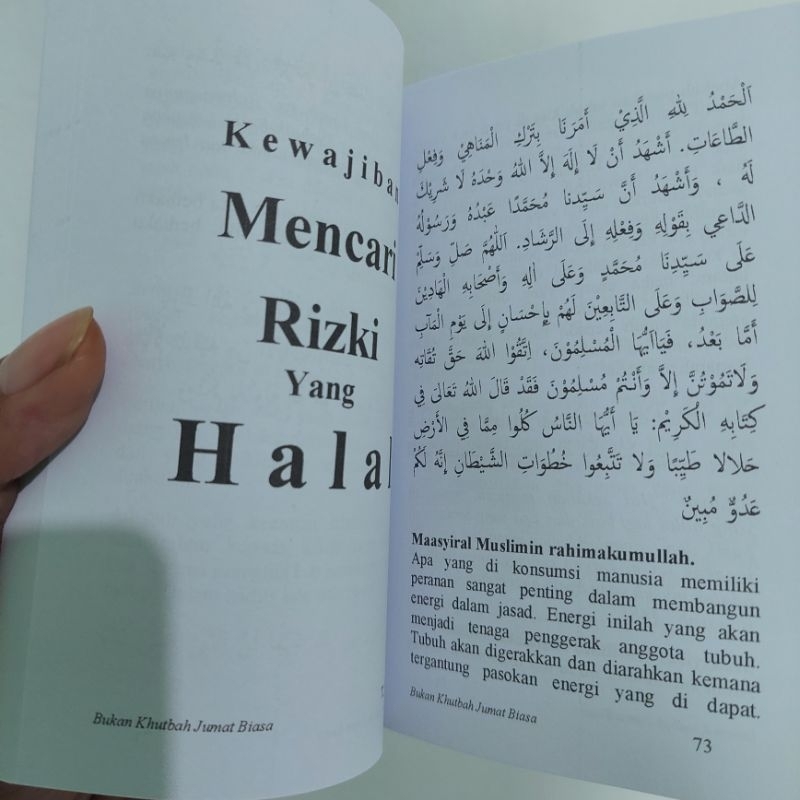 Kewajiban
Mencari
Rizki
Yang
Halal
Bukan Khutbah Jumat Biasa
اَلْحَمْدُ لِلهِ الَّذِيْ أَمَرَنَا بِتَرْكِ الْمَنَاهِيْ وَفِعْلِ
الطَّاعَاتِ. أَشْهَدُ أَنْ لَا إِلَهَ إِلاَّ اللهُ وَحْدَهُ لَا شَرِيْكَ
لَهُ ، وَأَشْهَدُ أَنَّ سَيِّدِنا مُحَمَّدًا عَبْدُهُ وَرَسُوْلُهُ
الدَّاعِي بِقَوْلِهِ وَفِعْلِهِ إِلَى الرَّشَادِ. اَللّٰهُمَّ صَلِّ وَسَلِّمْ
عَلَى سَيِّدِنَا مُحَمَّدٍ وَعَلَى اٰلِهِ وَأَصْحَابِهِ الْهَادِيْنَ
لِلصَّوَابِ وَعَلَى التَّابِعِيْنَ لَهُمْ بِإِحْسَانٍ إِلَى يَوْمِ الْمَآبِ
أَمَّا بَعْدُ، فَيَااَيُّهَا الْمُسْلِمُوْنَ، اِتَّقُوْا اللهَ حَقَّ تُقَاتِه
وَلَاتَمُوْتُنَّ إِلاَّ وَأَنْتُمْ مُسْلِمُوْنَ فَقَدْ قَالَ اللهُ تَعَالَى فِي
كِتَابِهِ الْكَرِيْمِ: يَا أَيُّهَا النَّاسُ كُلُوا مِمَّا فِي الْأَرْضِ
حَلَالا طَيِّبًا وَلا تَتَّبِعُوا خُطُوَاتِ الشَّيْطَانِ إِنَّهُ لَكُمْ
عَدُوٌّ مُبِينٌ
Maasyiral Muslimin rahimakumullah.
Apa yang di konsumsi manusia memiliki
peranan sangat penting dalam membangun
energi dalam jasad. Energi inilah yang akan
menjadi tenaga penggerak anggota tubuh.
Tubuh akan digerakkan dan diarahkan kemana
tergantung pasokan energi yang di dapat.
Bukan Khutbah Jumat Biasa
73